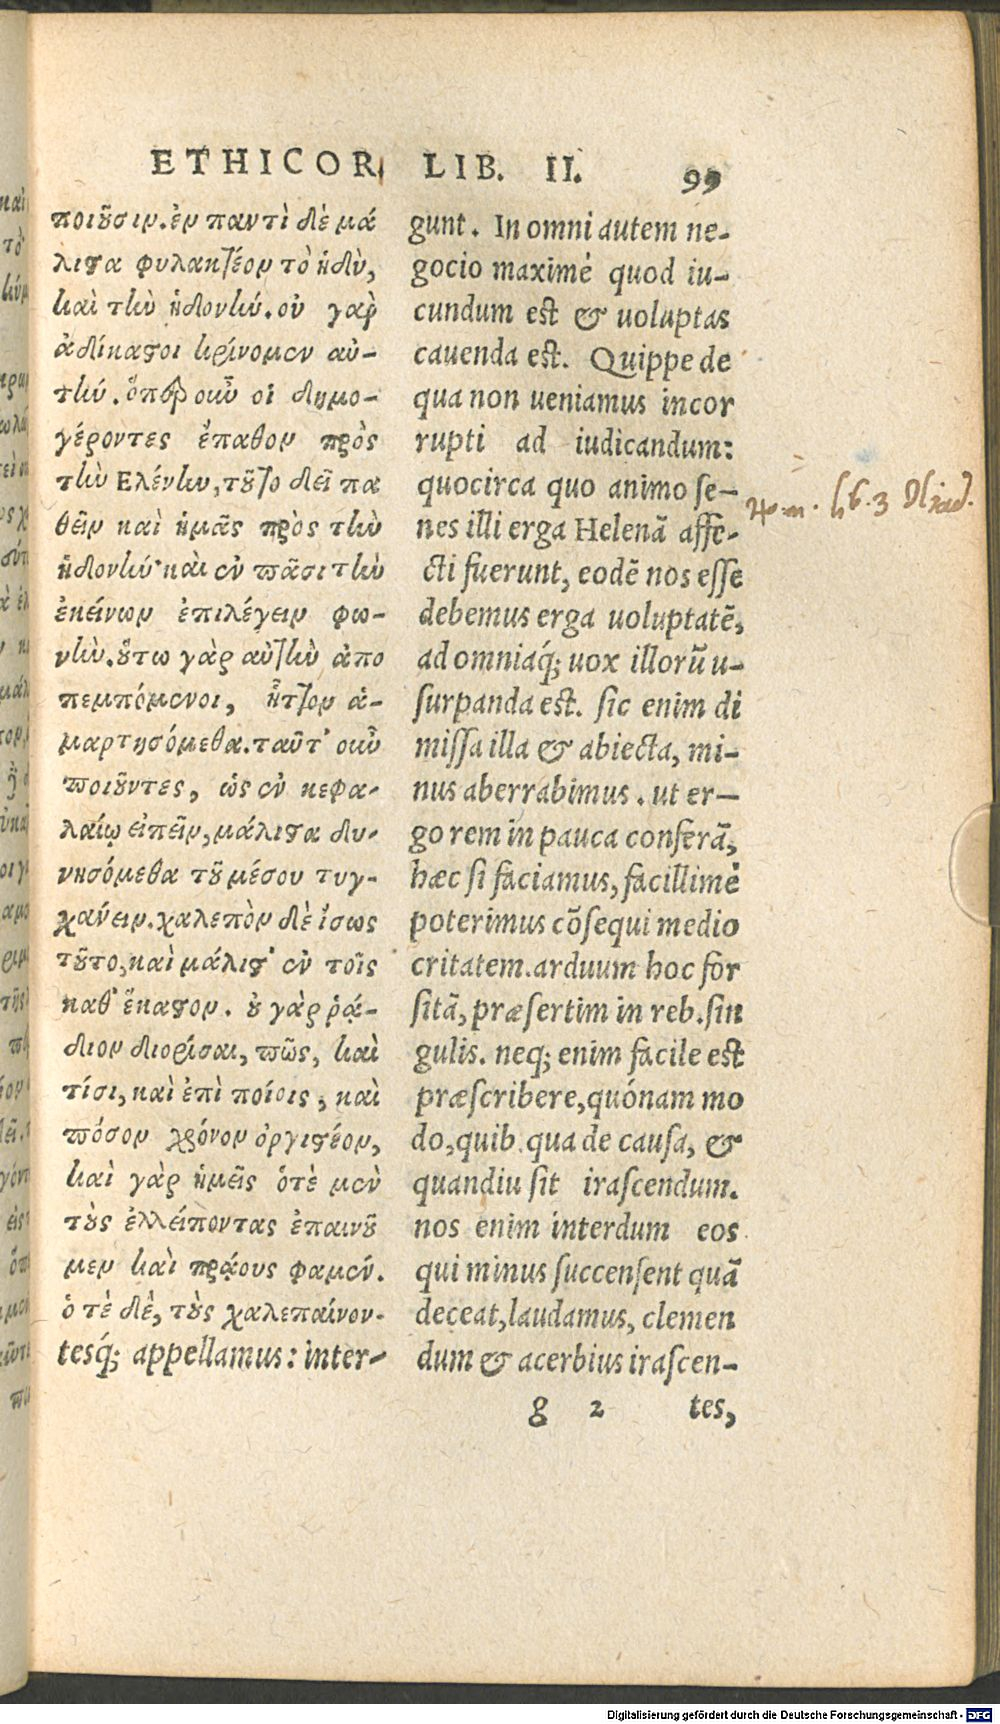 ETHICOR LIB. II. 99
ποιοῦσιν. ἐν παντὶ δὲ μά
λιστα φυλακτέον τὸ ἡδὺ,
καὶ τὴν ἡδονήν. οὐ γὰρ
ἀδίκαστοι κρίνομεν αὐ-
τήν. ὅπερ οὖν οἱ δημο-
γέροντες ἔπαθον πρὸς
τὴν Ελένην, τοῦτο δεῖ πα
θεῖν καὶ ἡμᾶς πρὸς τὴν
ἡδονήν· καὶ ἐν πᾶσι τὴν
ἐκείνων ἐπιλέγειν φω-
νήν. οὕτω γὰρ αὐτὴν ἀπο
πεμπόμενοι, ἧττον ἁ-
μαρτησόμεθα. ταῦτ' οὖν
ποιοῦντες, ὡς ἐν κεφα-
λαίῳ εἰπεῖν, μάλιστα δυ-
νησόμεθα τοῦ μέσου τυγ-
χάνειν. χαλεπὸν δὲ ἴσως
τοῦτο, καὶ μάλιστ' ἐν τοῖς
καθ' ἕκαστον. οὐ γὰρ ῥᾴ-
διον διορίσαι, πῶς, καὶ
τίσι, καὶ ἐπὶ ποίοις, καὶ
πόσον χρόνον ὀργιστέον,
καὶ γὰρ ἡμεῖς ὁτὲ μὲν
τοὺς ἐλλείποντας ἐπαινοῦ
μεν καὶ πρᾴους φαμέν.
ὁτὲ δὲ, τοὺς χαλεπαίνον-
tesq́; appellamus: inter-
gunt. In omni autem ne-
gocio maximè quod iu-
cundum est & uoluptas
cauenda est. Quippe de
qua non ueniamus incor
rupti ad iudicandum:
quocirca quo animo se-
nes illi erga Helenã affe-
cti fuerunt, eodẽ nos esse
debemus erga uoluptatẽ,
ad omniaq́; uox illorũ u-
surpanda est. sic enim di
missa illa & abiecta, mi-
nus aberrabimus. ut er-
go rem in pauca conferã,
hæc si faciamus, facillimè
poterimus cõsequi medio
critatem. arduum hoc for
sitã, præsertim in reb. sin
gulis. neq; enim facile est
præscribere, quónam mo
do, quib. qua de causa, &
quandiu sit irascendum.
nos enim interdum eos
qui minus succensent quã
deceat, laudamus, clemen
dum & acerbius irascen-
g 2 tes,
Digitalisierung gefördert durch die Deutsche Forschungsgemeinschaft - DFG